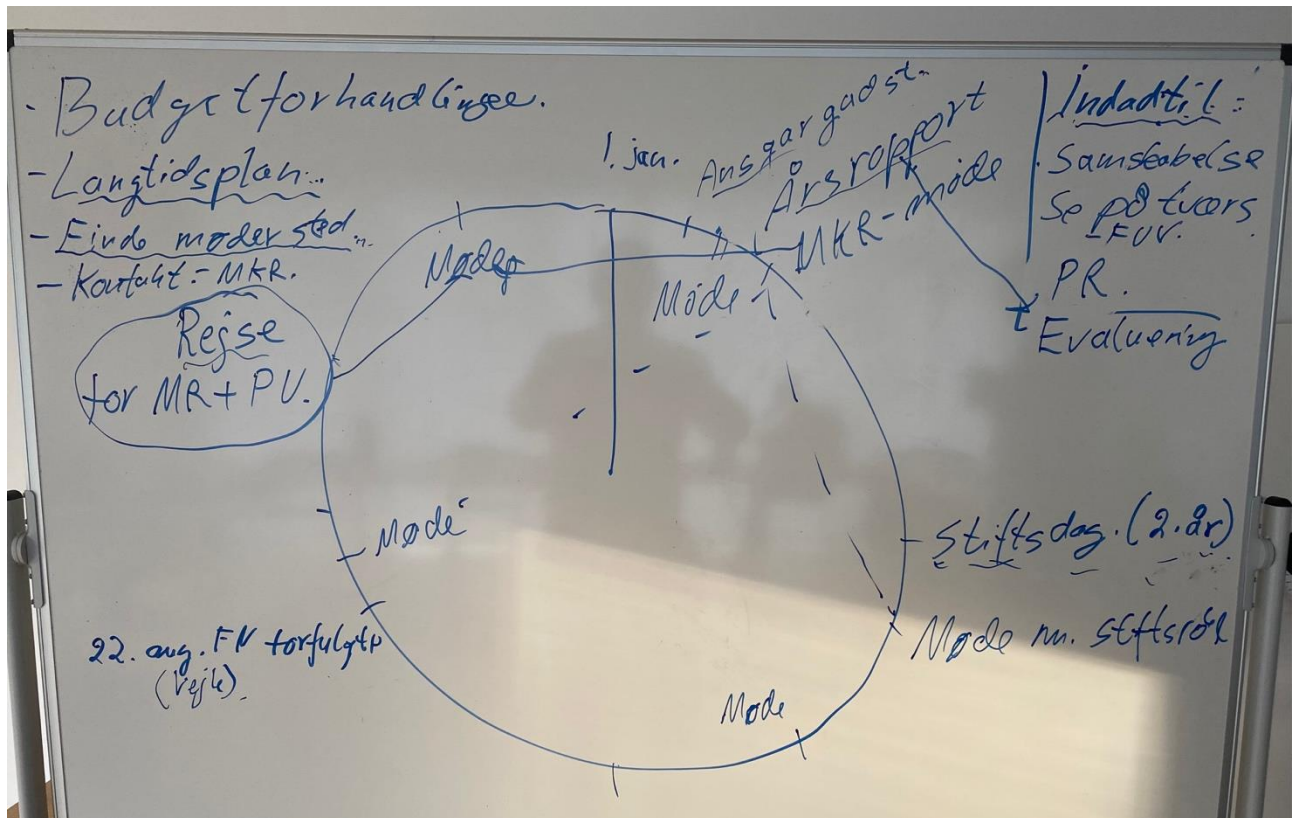 - Budgetforhandlinger.
- Langtidsplan...
- Finde møder sted...
- Kontakt = MKR.
Rejse
for MR + PU.
1. jan.
Ansgar gudst.
Årsrapport
MKR-møde
Indadtil:
Samskabelse
Se på tværs
- FUV.
PR.
Evaluering
Møde
Møde
Møde
Stiftsdag. (2. år)
Møde m. stiftsråd
Møde
22. aug. FN forfulgte
(Vejle)